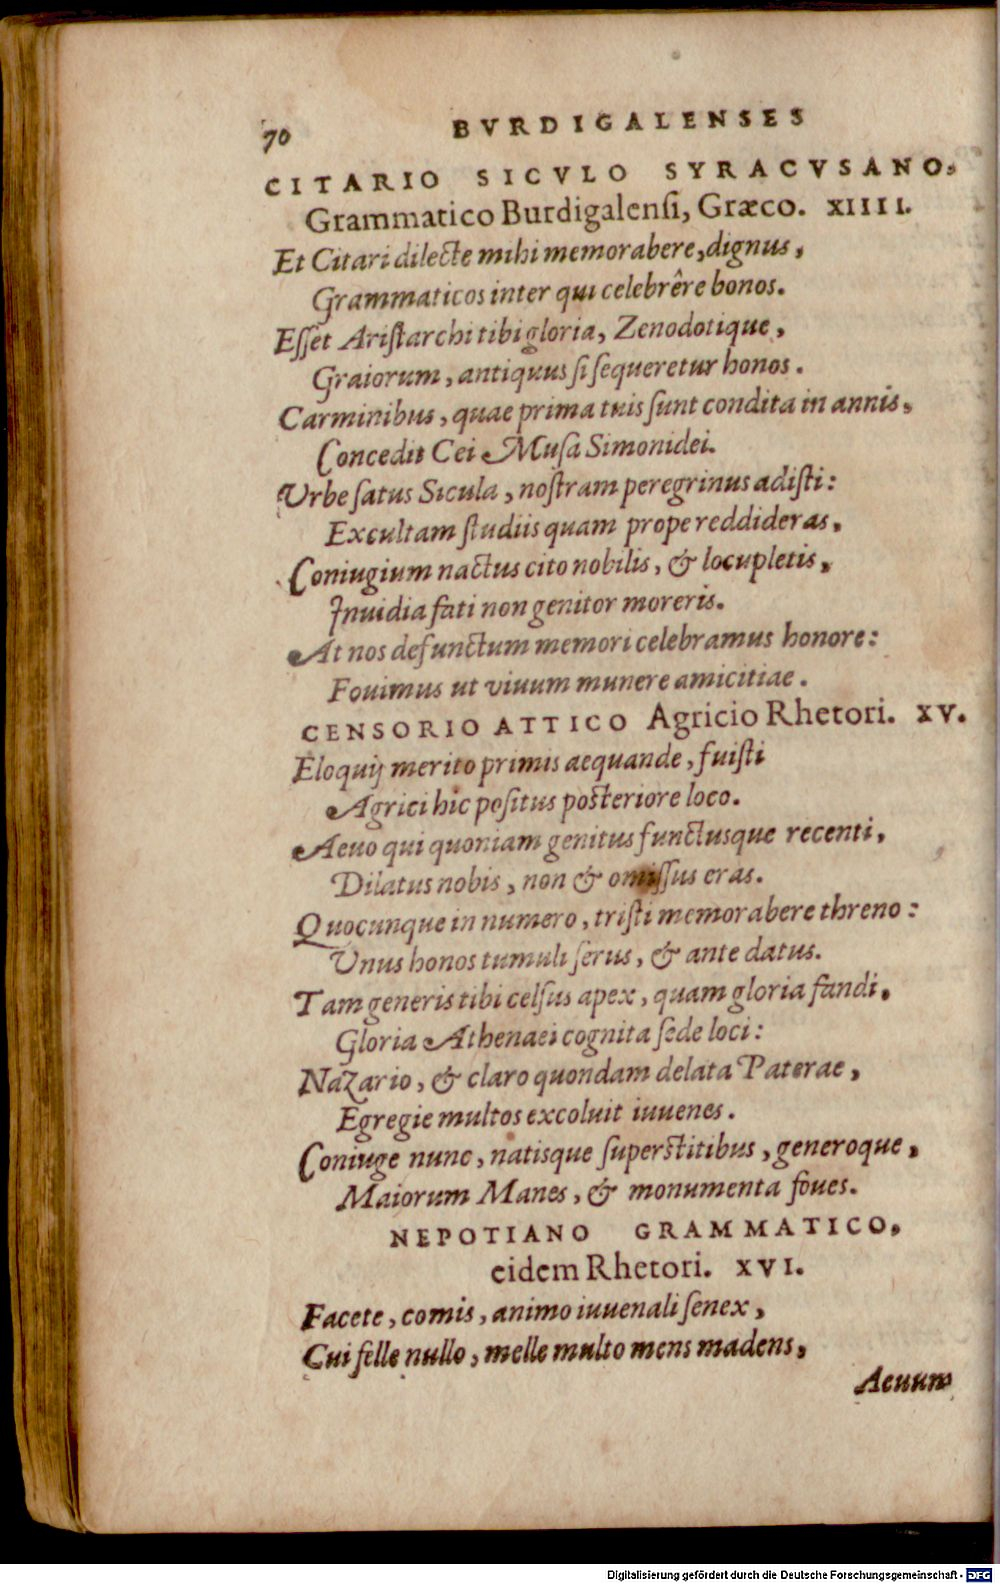 70 BVRDIGALENSES
CITARIO SICVLO SYRACVSANO,
Grammatico Burdigalenſi, Græco. XIIII.
Et Citari dilecte mihi memorabere, dignus,
Grammaticos inter qui celebrêre bonos.
Eſſet Ariſtarchi tibi gloria, Zenodotique,
Graiorum, antiquus ſi ſequeretur honos.
Carminibus, quae prima tuis ſunt condita in annis,
Concedit Cei Muſa Simonidei.
Vrbe ſatus Sicula, noſtram peregrinus adiſti:
Excultam ſtudiis quam prope reddideras,
Coniugium nactus cito nobilis, & locupletis,
Inuidia fati non genitor moreris.
At nos defunctum memori celebramus honore:
Fouimus ut viuum munere amicitiae.
CENSORIO ATTICO Agricio Rhetori. XV.
Eloquij merito primis aequande, fuiſti
Agrici hic poſitus poſteriore loco.
Aeuo qui quoniam genitus functusque recenti,
Dilatus nobis, non & omiſſus eras.
Quocunque in numero, triſti memorabere threno:
Vnus honos tumuli ſerus, & ante datus.
Tam generis tibi celſus apex, quam gloria fandi,
Gloria Athenaei cognita ſede loci:
Nazario, & claro quondam delata Paterae,
Egregie multos excoluit iuuenes.
Coniuge nunc, natisque ſuperstitibus, generoque,
Maiorum Manes, & monumenta foues.
NEPOTIANO GRAMMATICO,
eidem Rhetori. XVI.
Facete, comis, animo iuuenali ſenex,
Cui felle nullo, melle multo mens madens,
Aeuum
Digitalisierung gefördert durch die Deutsche Forschungsgemeinschaft - DFG